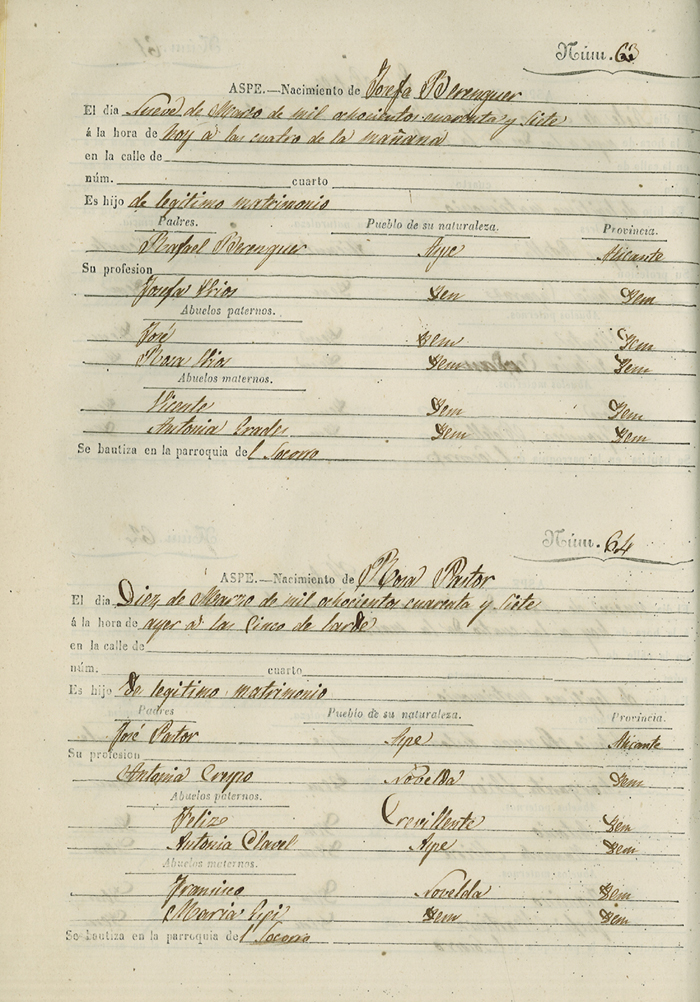 Núm. 63
ASPE.—Nacimiento de Josefa Berenguer
El dia Nueve de Marzo de mil ochocientos cuarenta y siete
á la hora de hoy á las cuatro de la mañana
en la calle de
núm. cuarto
Es hijo de legitimo matrimonio
Padres. Pueblo de su naturaleza. Provincia.
Rafael Berenguer Aspe Alicante
Su profesion
Josefa Rios Idem Idem
Abuelos paternos.
José Idem Idem
Rosa Rios Idem Idem
Abuelos maternos.
Vicente Idem Idem
Antonia Idem Idem
Se bautiza en la parroquia del Socorro
Núm. 64
ASPE.—Nacimiento de Rosa Pastor
El dia Diez de Marzo de mil ochocientos cuarenta y siete
á la hora de ayer á las cinco de tarde
en la calle de
núm. cuarto
Es hijo de legitimo matrimonio
Padres Pueblo de su naturaleza. Provincia.
José Pastor Aspe Alicante
Su profesion
Antonia Crespo Novelda Idem
Abuelos paternos.
Felize Crevillente Idem
Antonia Clavel Aspe Idem
Abuelos maternos.
Fransisco Novelda Idem
Maria Idem Idem
Se bautiza en la parroquia del Socorro